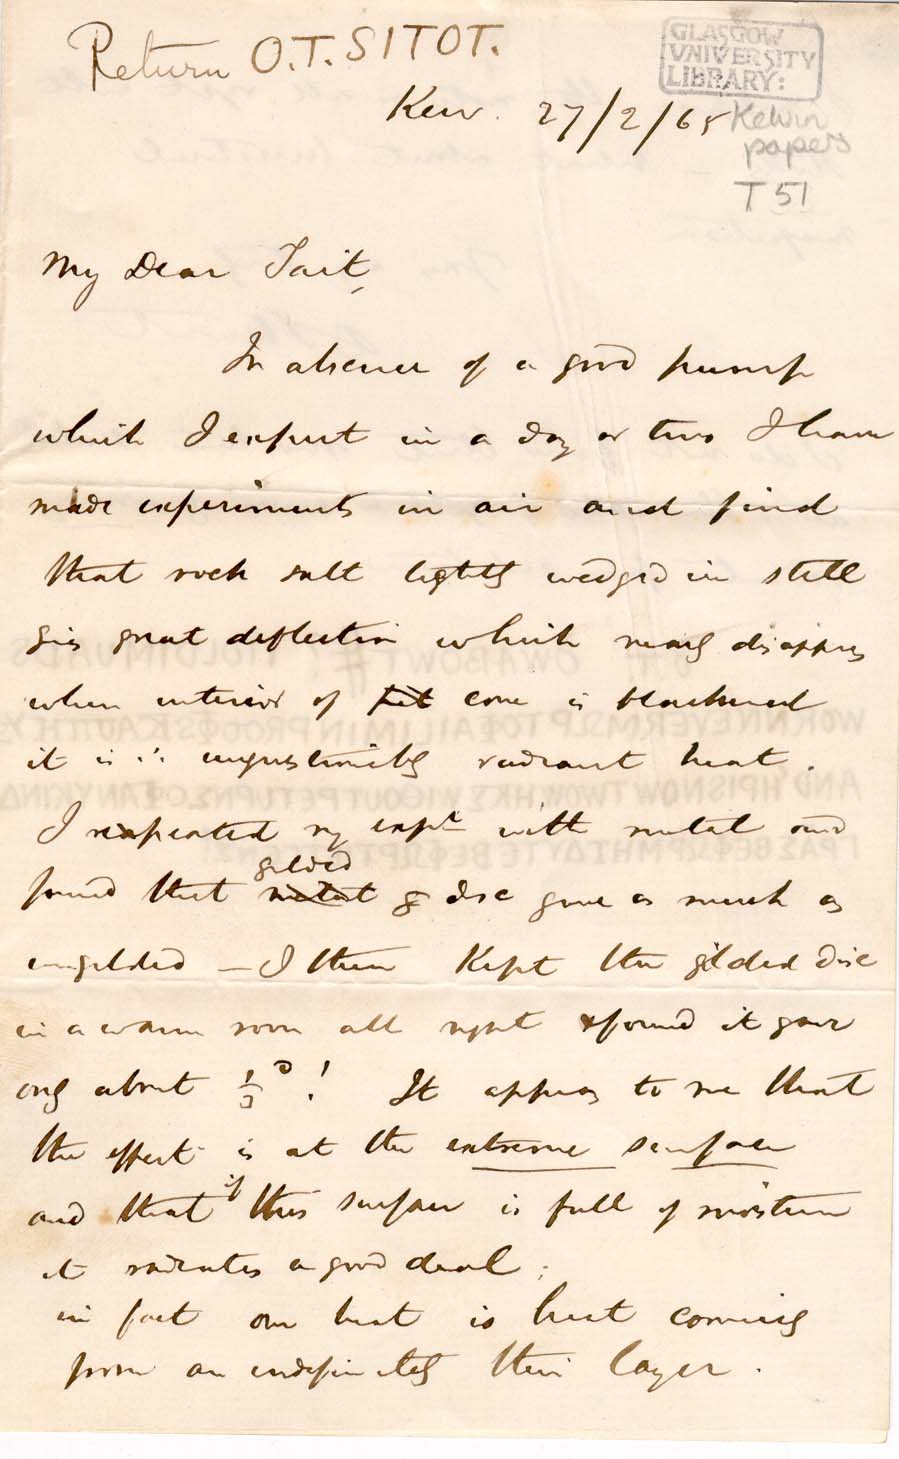 Return O.T. SITOT.
GLASGOW
UNIVERSITY
LIBRARY:
Kew. 27/2/65
Kelvin
papers
T 51
My Dear Tait,
In absence of a good pump
which I expect in a day or two I have
made experiments in air and find
that rock salt tightly wedged in still
gives great deflection which nearly disappears
when interior of cone is blackened
it is ∴ unquestionably radiant heat.
I repeated my expt with metal and
gilded
found that metal disc gave as much as
ungilded — I then kept the gilded disc
in a warm room all night & found it gave
only about 1/3 D!  It appears to me that
the effect is at the extreme surface
if
and that this surface is full of moisture
it radiates a good deal;
in fact our heat is heat coming
from an indefinitely thin layer.